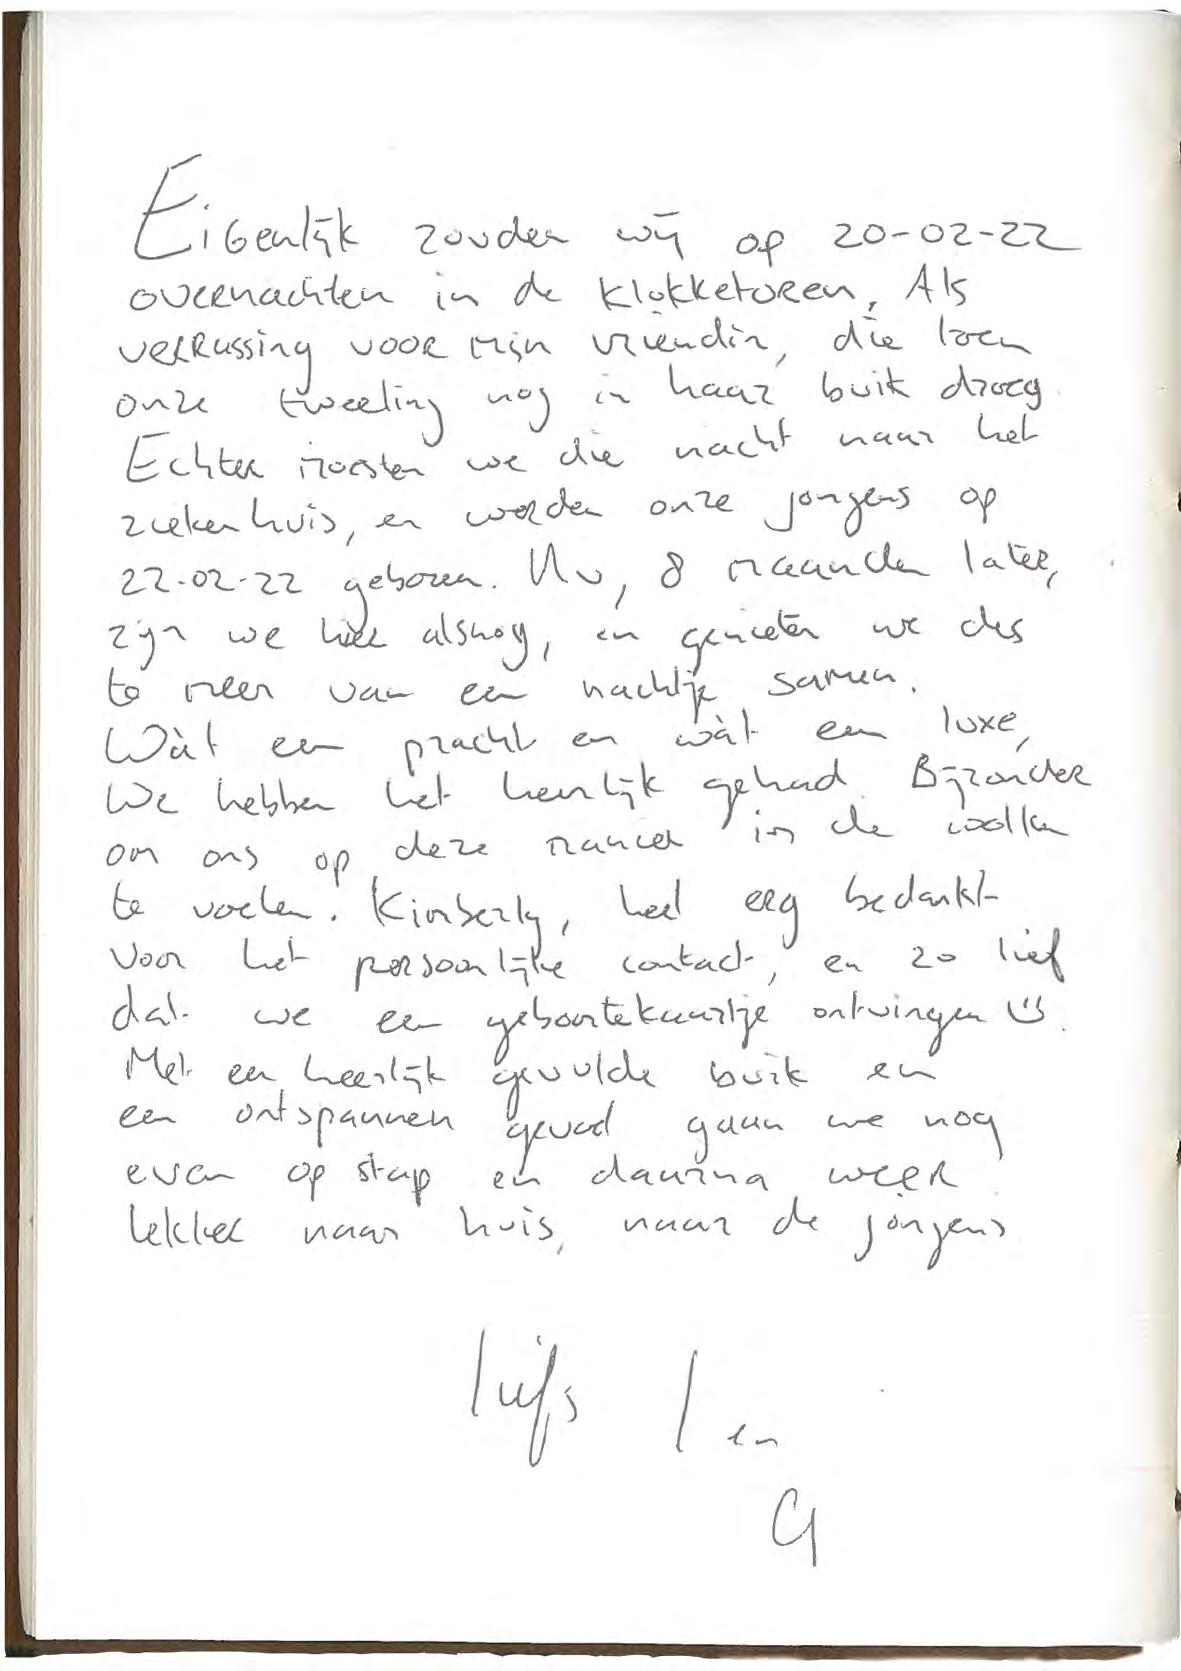 Eigenlijk zouden wij op 20-02-22
overnachten in de Klokketoren. Als
verrassing voor mijn vriendin, die toen
onze tweeling nog in haar buik droeg.
Echter moesten we die nacht naar het
ziekenhuis, en werden onze jongens op
22-02-22 geboren. Nu, 8 maanden later,
zijn we hier alsnog, en genieten we des
te meer van een nachtje samen.
Wàt een pracht en wàt een luxe,
We hebben het heerlijk gehad. Bijzonder
om ons op deze manier in de wolken
te voelen. Kimberly, heel erg bedankt
voor het persoonlijke contact, en zo lief
dat we een geboortekaartje ontvingen ☺.
Met een heerlijk gevulde buik en
een ontspannen gevoel gaan we nog
even op stap en daarna weer
lekker naar huis, naar de jongens
liefs I en
G